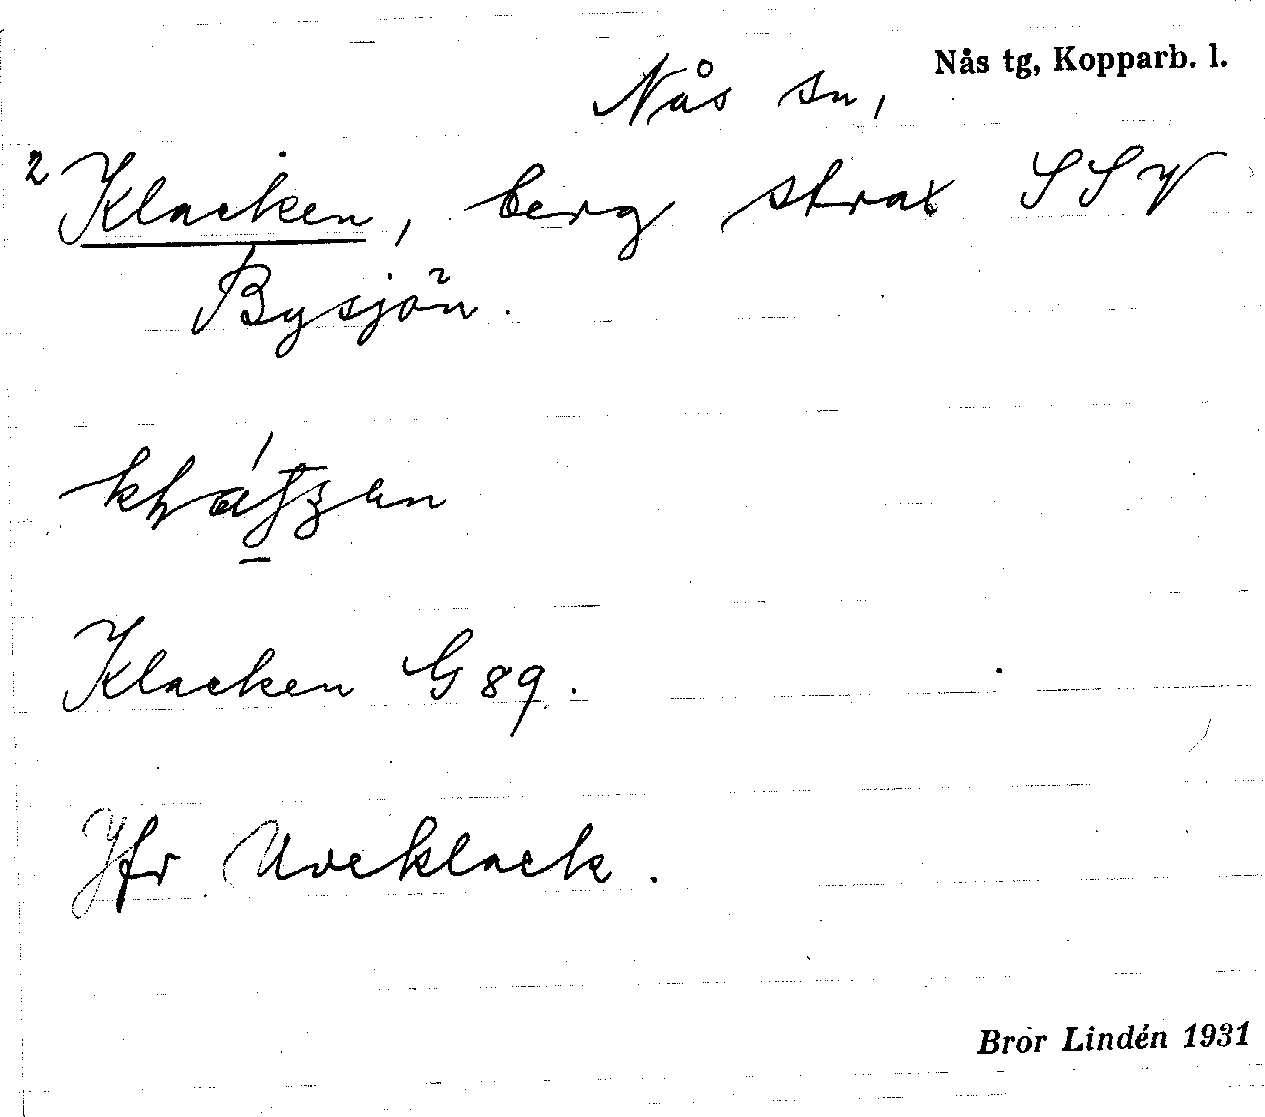 Nås tg, Kopparb. l.
Nås sn,
2 Klacken, berg strax SSV
Bysjön.
Klacken G 89.
Jfr Uveklack.
Bror Lindén 1931